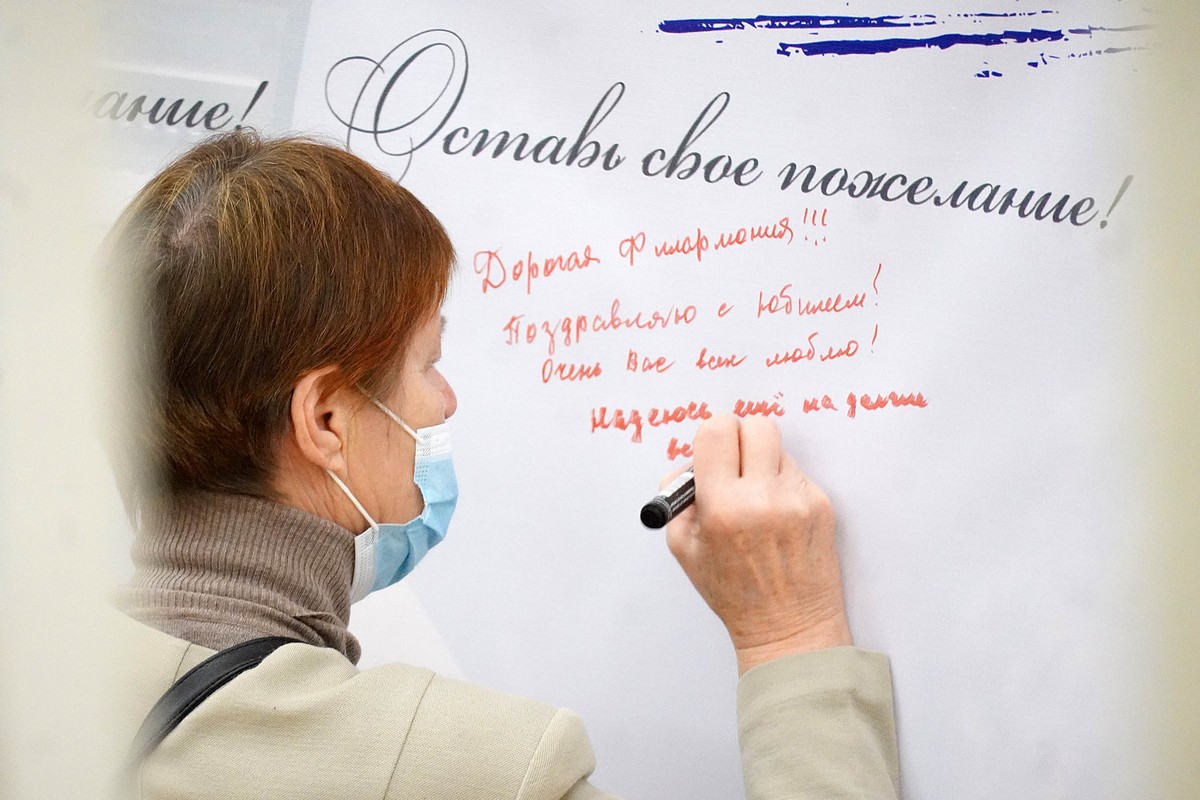 ание!
Оставь свое пожелание!
Дорогая Филармония!!!
Поздравляю с Юбилеем!
Очень Вас всех люблю!
Надеюсь ещё на долгие